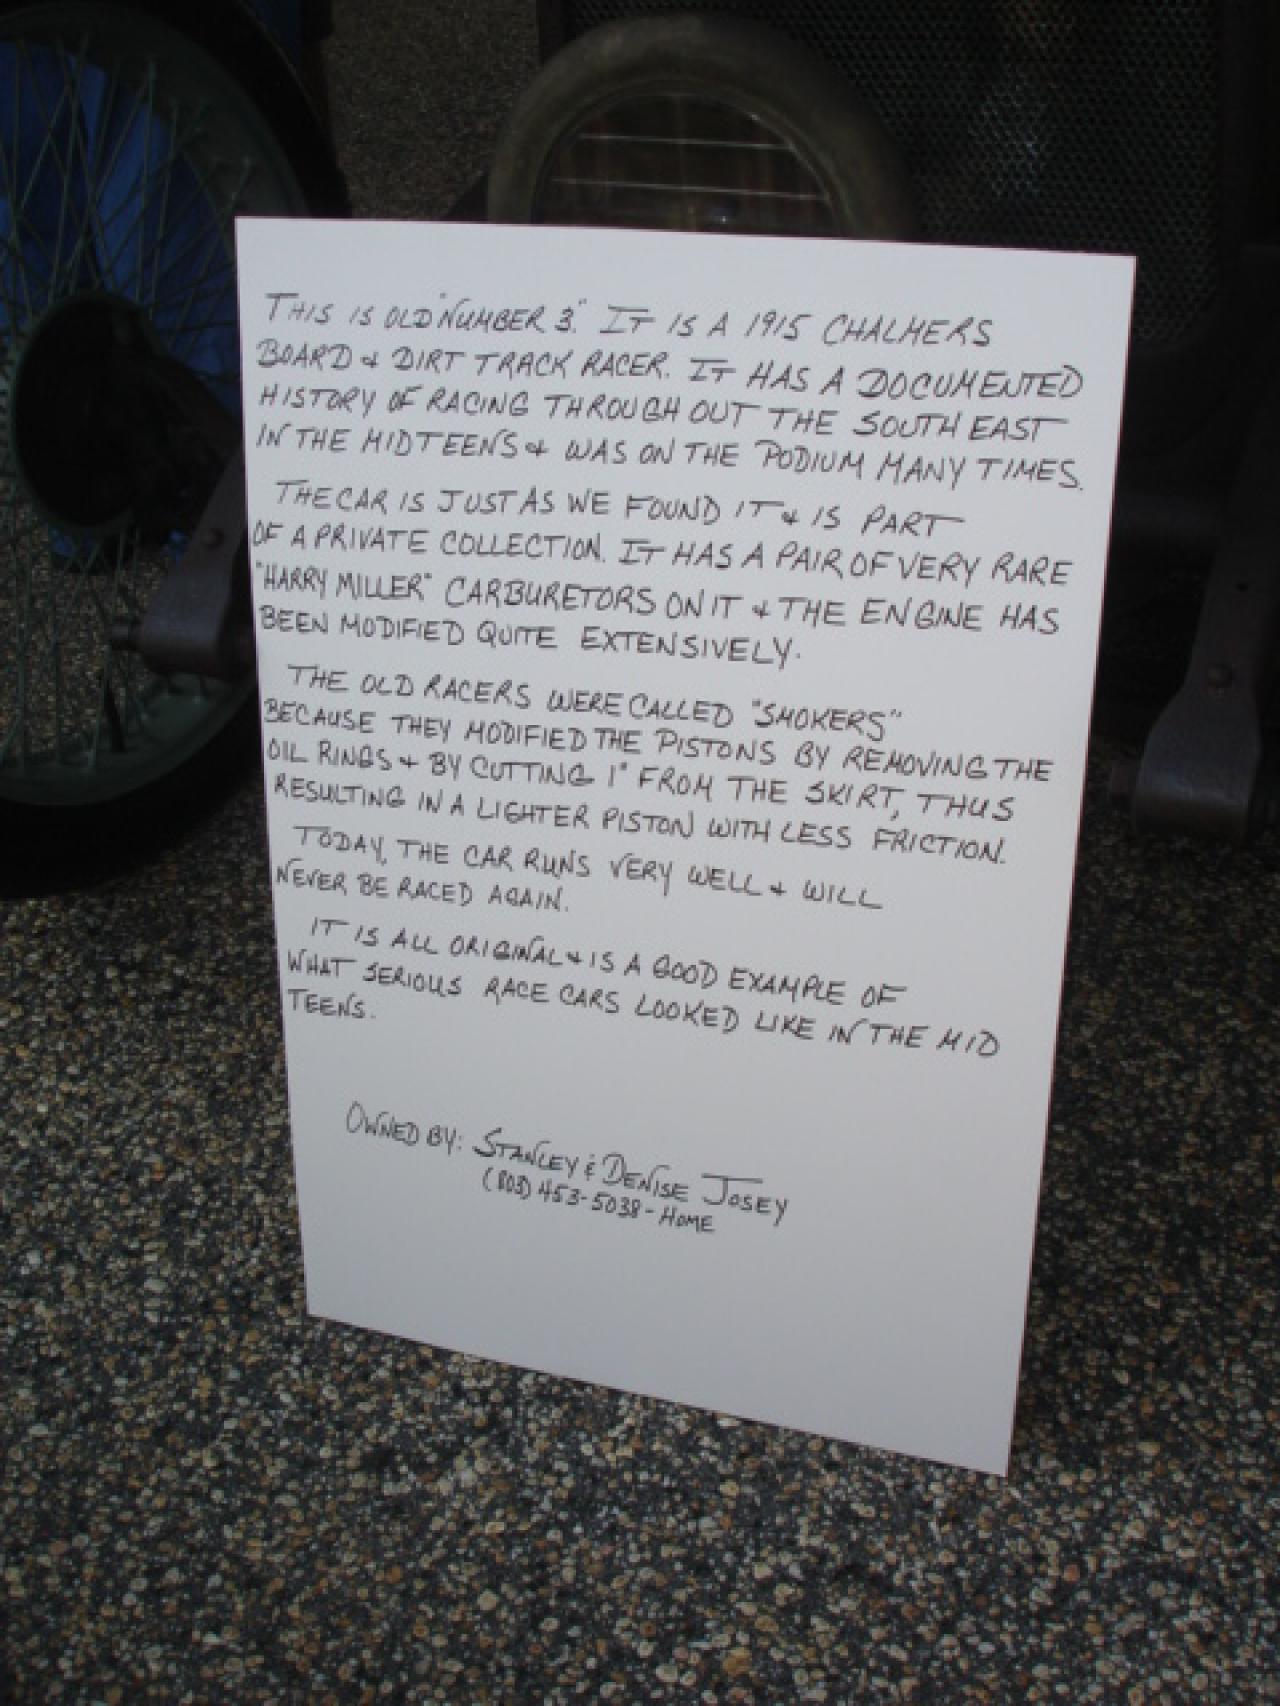 THIS IS OLD "NUMBER 3". IT IS A 1915 CHALMERS
BOARD & DIRT TRACK RACER. IT HAS A DOCUMENTED
HISTORY OF RACING THROUGH OUT THE SOUTH EAST
IN THE MID TEENS & WAS ON THE PODIUM MANY TIMES.
THE CAR IS JUST AS WE FOUND IT & IS PART
OF A PRIVATE COLLECTION. IT HAS A PAIR OF VERY RARE
"HARRY MILLER" CARBURETORS ON IT & THE ENGINE HAS
BEEN MODIFIED QUITE EXTENSIVELY.
THE OLD RACERS WERE CALLED "SMOKERS"
BECAUSE THEY MODIFIED THE PISTONS BY REMOVING THE
OIL RINGS & BY CUTTING 1" FROM THE SKIRT, THUS
RESULTING IN A LIGHTER PISTON WITH LESS FRICTION.
TODAY, THE CAR RUNS VERY WELL & WILL
NEVER BE RACED AGAIN.
IT IS ALL ORIGINAL & IS A GOOD EXAMPLE OF
WHAT SERIOUS RACE CARS LOOKED LIKE IN THE MID
TEENS.
OWNED BY: STANLEY & DENISE JOSEY
(803) 453-5038 - HOME